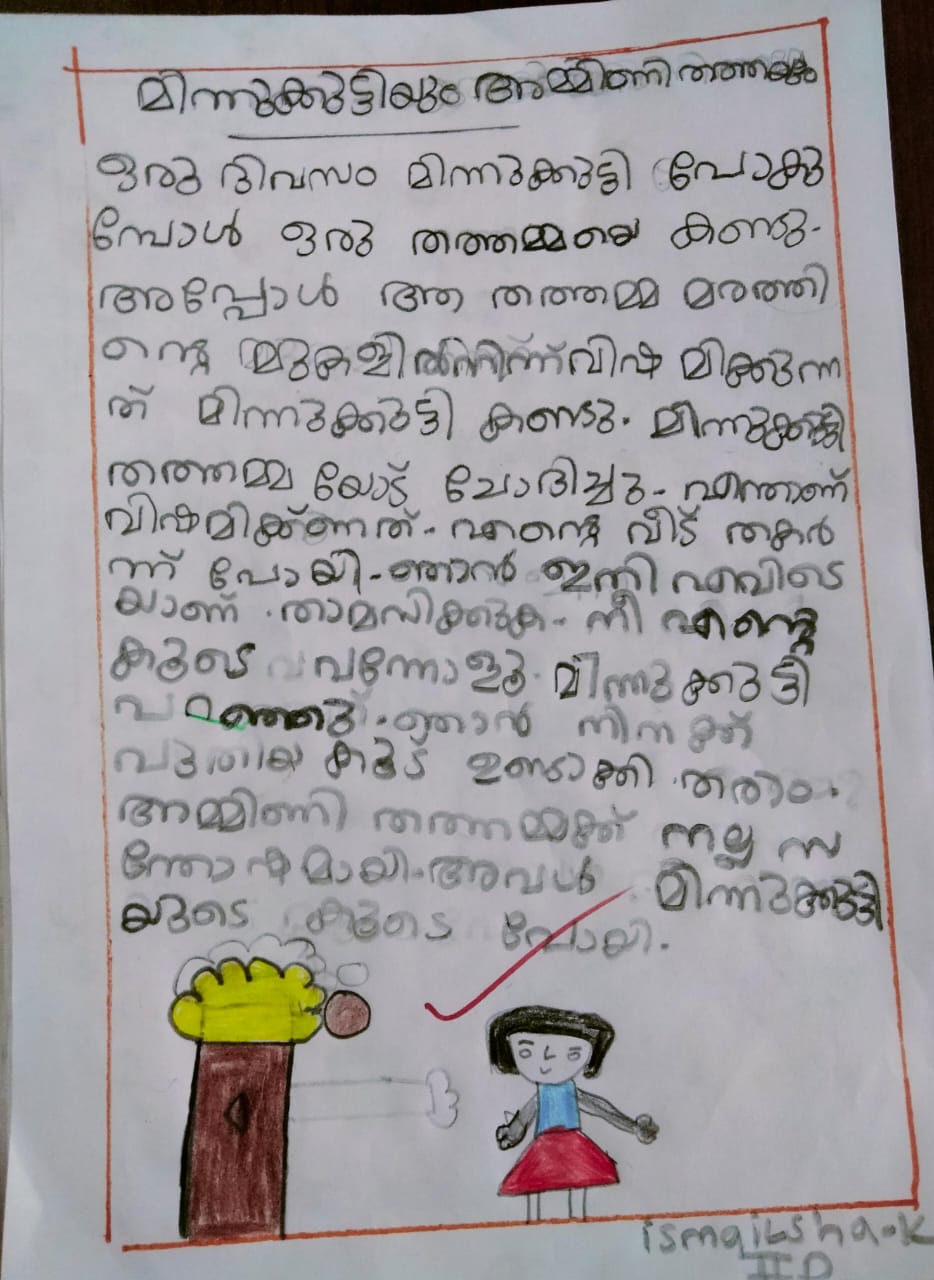 മിന്നുക്കുട്ടിയും അമ്മിണി തത്തയും
ഒരു ദിവസം മിന്നുക്കുട്ടി പോകു
മ്പോൾ ഒരു തത്തമ്മയെ കണ്ടു.
അപ്പോൾ ആ തത്തമ്മ മരത്തി
ന്റെ മുകളിൽനിന്ന് വിഷ മിക്കുന്ന
ത് മിന്നുക്കുട്ടി കണ്ടു. മിന്നുക്കുട്ടി
തത്തമ്മ യോട് ചോദിച്ചു. എന്താണ്
വിഷമിക്ക്ണത്. എന്റെ വീട് തകർ
ന്ന് പോയി. ഞാൻ ഇനി എവിടെ
യാണ് താമസിക്കുക. നീ എന്റെ
കൂടെ വന്നോളൂ. മിന്നുക്കുട്ടി
പറഞ്ഞു. ഞാൻ നിനക്ക്
പുതിയ കൂട് ഉണ്ടാക്കി തരാം.
അമ്മിണി തത്തമ്മക്ക് നല്ല സ
ന്തോഷമായി. അവൾ മിന്നുക്കുട്ടി
യുടെ കൂടെ പോയി.
ismailsha.k
II D